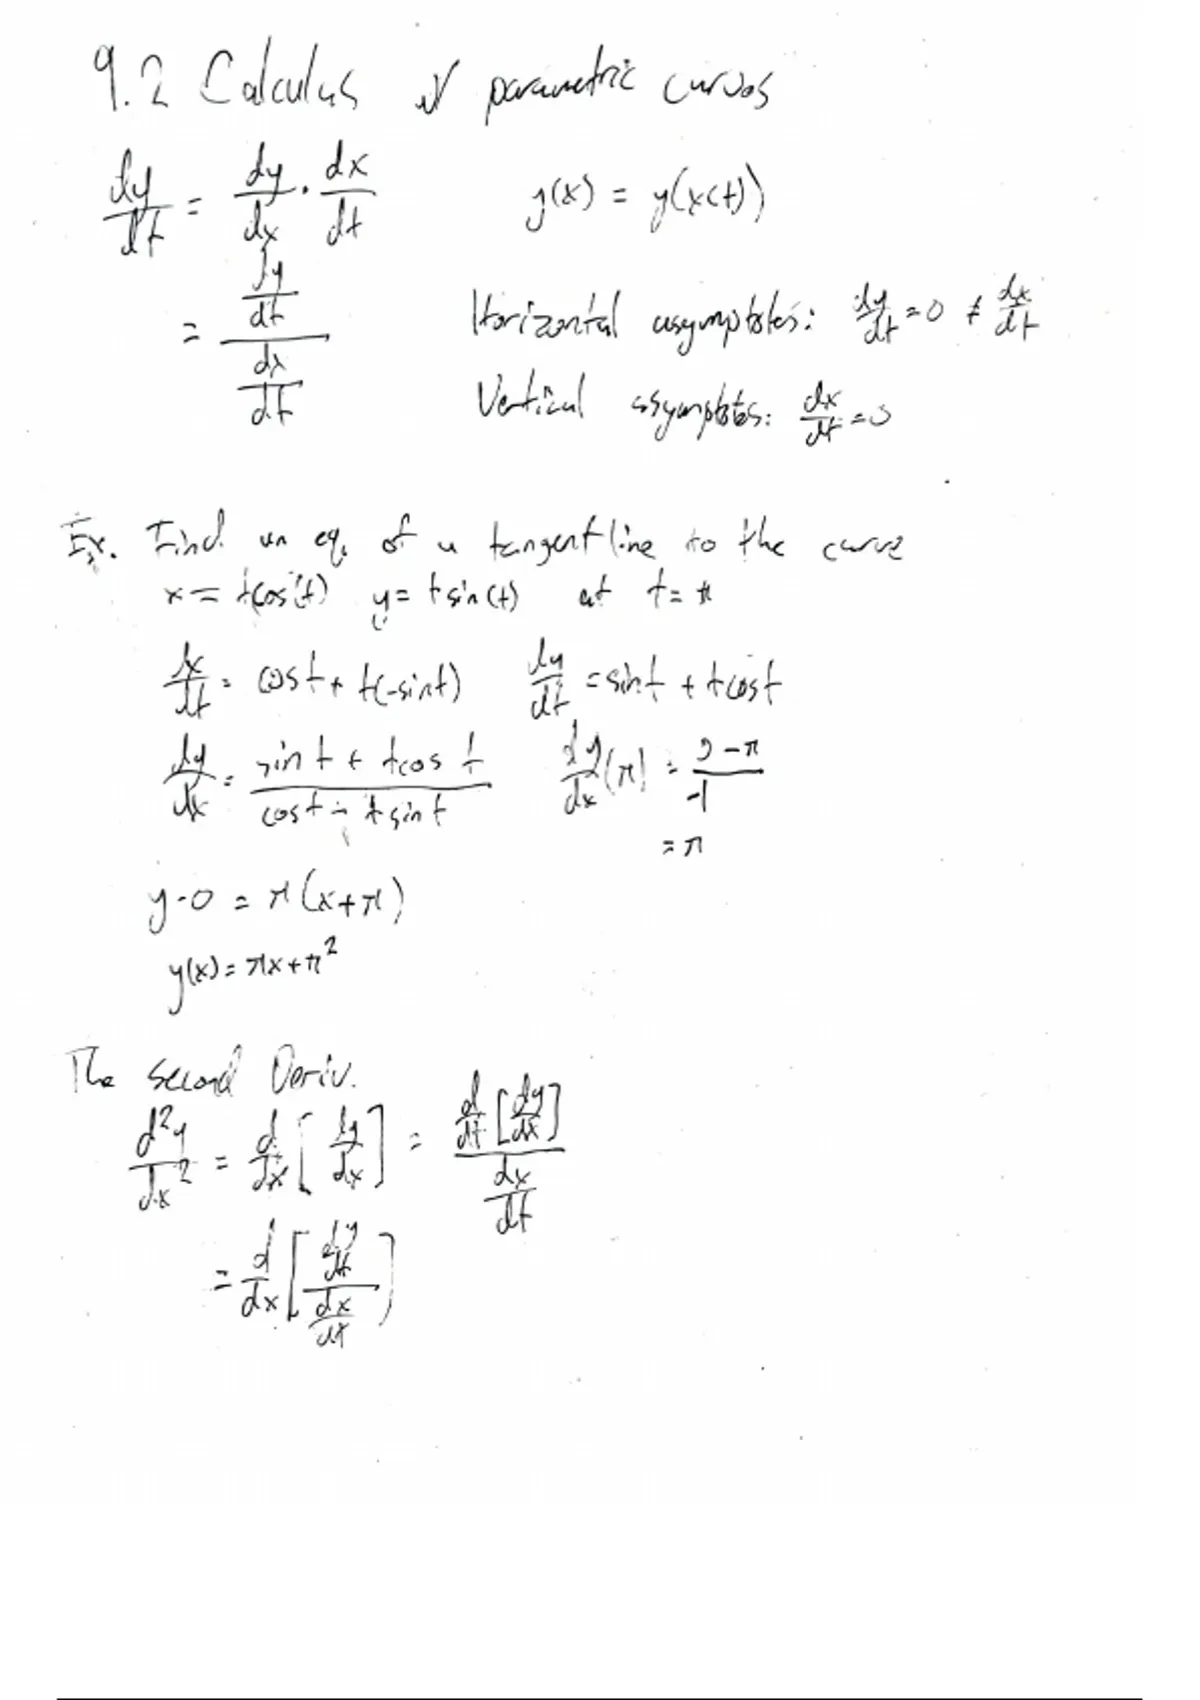 9.2 Calculus w/ parametric curves
dy/dt = dy/dx · dx/dt
y(x) = y(x(t))
= (dy/dt)/(dx/dt)
Horizontal asymptotes: dy/dt = 0 ≠ dx/dt
Vertical asymptotes: dx/dt = 0
Ex. Find an eq. of a tangent line to the curve
x = tcos(t) y = tsin(t) at t = π
dx/dt = cost + t(-sint) dy/dt = sint + tcost
dy/dx = (sint + tcost)/(cost - tsint) dy/dx(π) = (0 - π)/-1
= π
y-0 = π(x+π)
y(x) = πx + π²
The Second Deriv.
d²y/dx² = d/dx[dy/dx] = (d/dt[dy/dx])/(dx/dt)
= d/dx[(dy/dt)/(dx/dt)]